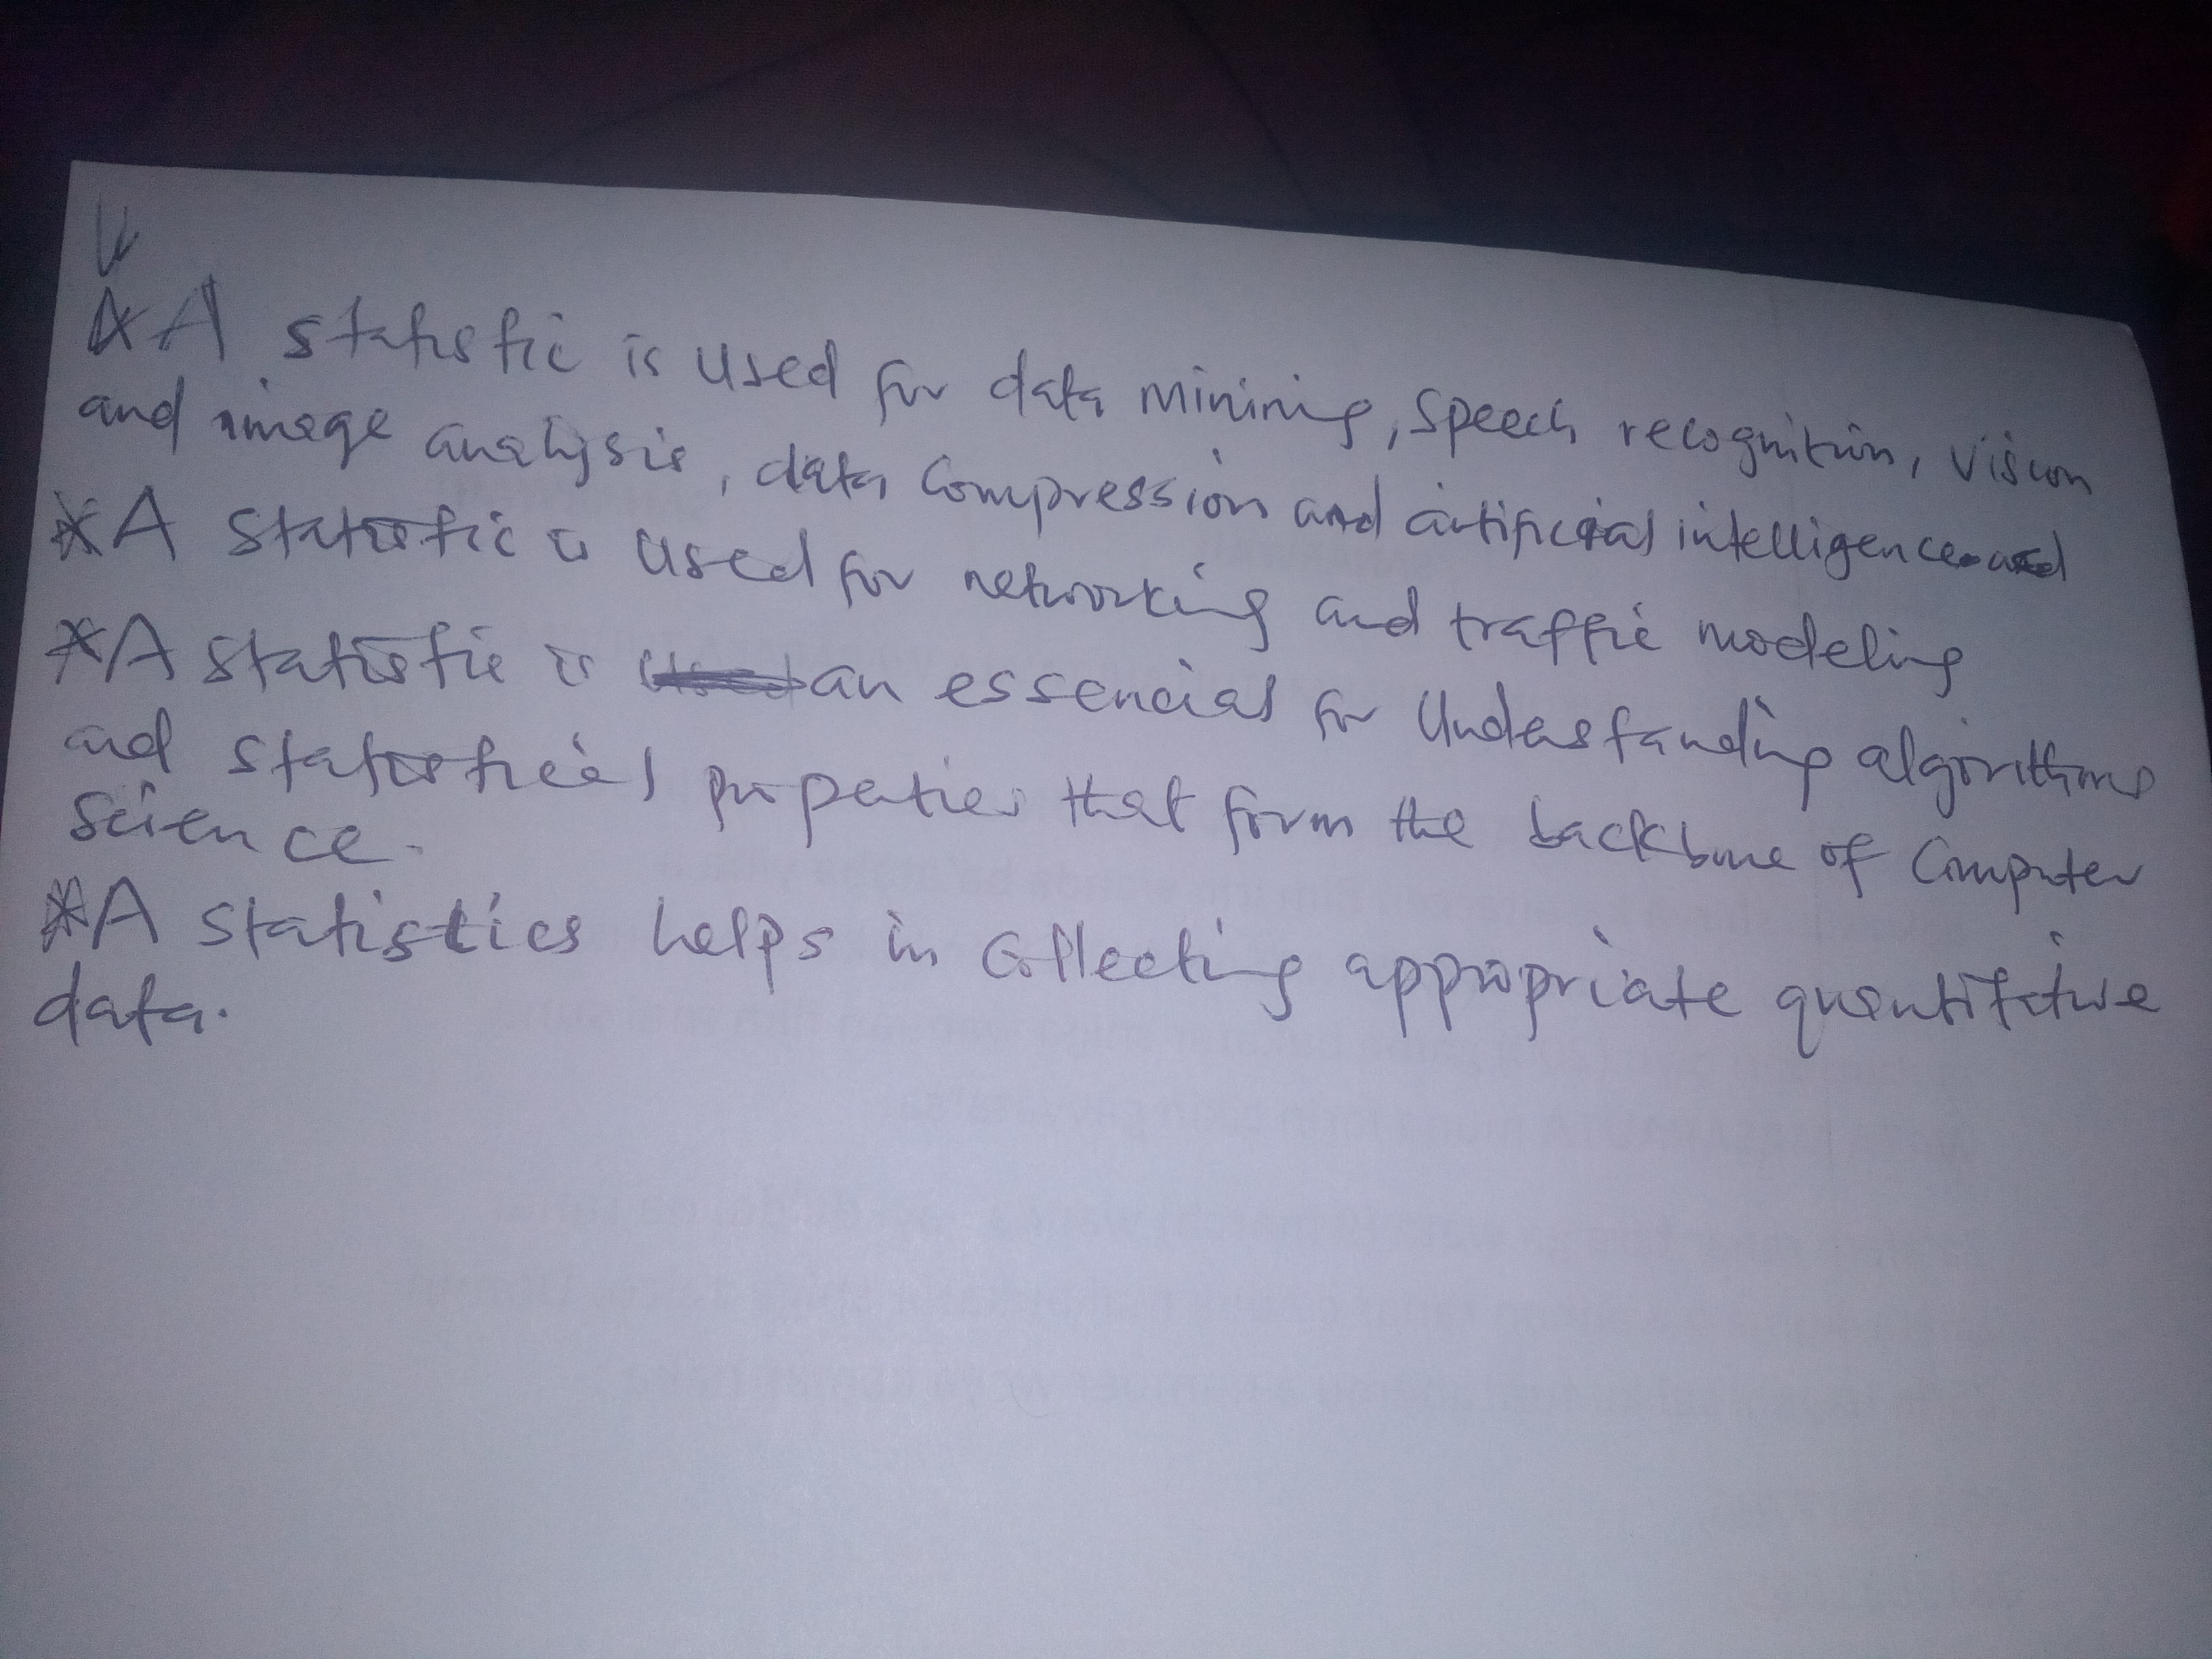 *A statistic is used for data mining, speech recognition, vision
and image analysis, data compression and artificial intelligence and
*A statistic is used for networking and traffic modeling
*A statistic is an essencial for understanding algorithms
and statistical properties that form the backbone of computer
science.
*A statistics helps in collecting appropriate quantitative
data.